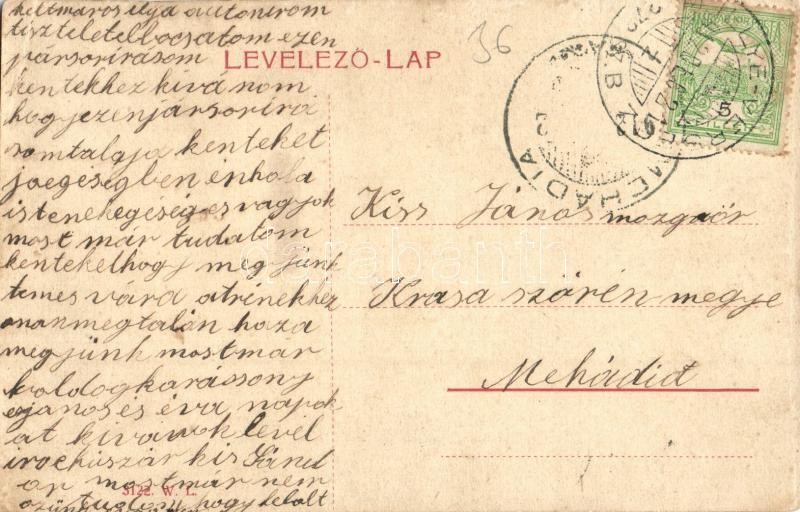 keltmarosilya autonirom
tiszteletelbocsatom ezen
pársorirásom
kentekhez kivánom
hogyezenjársorirá
somtalgja kenteket
joegeségben énhola
istenekegéségesvagyok
most már tudatom
kentekelhogy megjünk
temes várd atrénekhez
onanmegtalán haza
megjünk mostmár
boldogkarássony
ejanosés éva napok
at kivánok levél
iroehúszár kis Sánd
or mostmár nem
tudom hogy helolt
LEVELEZŐ-LAP
36
MEHADIA
5
Kiss János mozgoór
Krasa szörén megye
Mehádia
3122. W. L.
darabanth